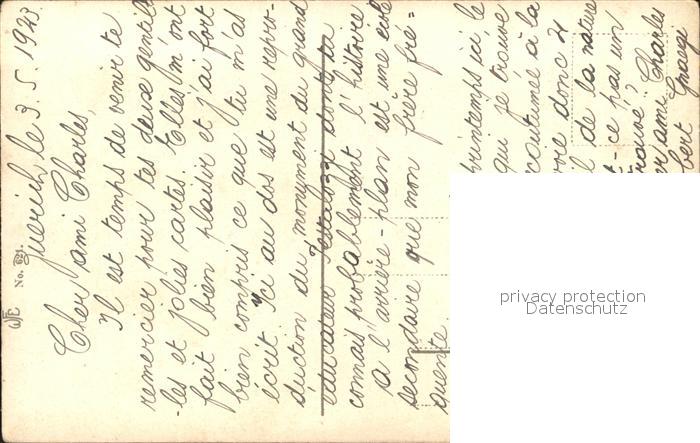 No. 621.
Zuerich, le 3. 5. 1923.
Cher ami Charles,
Il est temps de venir te
remercier pour tes deux gentil
-les et jolies cartes. Elles m'ont
fait bien plaisir et j'ai fort
bien compris ce que tu m'as
écrit. Ici au dos est une repro-
duction du monument du grand
éducateur Pestalozzi dont tu
connais probablement l'histoire
A l'arrière-plan est une école
secondaire que mon frère fré=
quente
printemps ici le
qui je trouve
coutumé à la
donc
il de la nature
-ce pas un
trouve? Charles
er ami
bert
privacy protection
Datenschutz